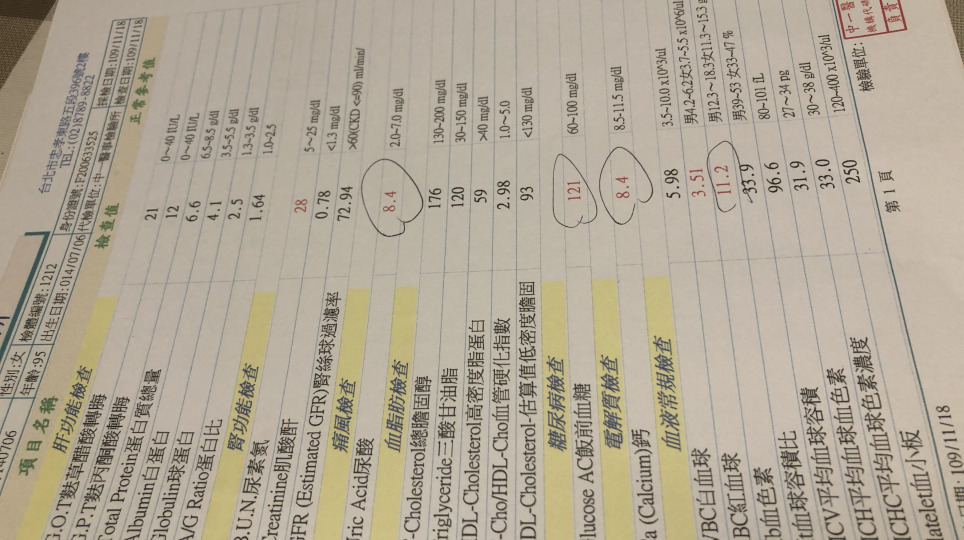 台北市忠孝東路五段396號2樓
TEL:(02)8789-8822
性別:女 檢體編號:1212 身份證號:F200633525 採檢日期:109/11/18
年齡:95 出生日期:014/07/06 代檢單位:中一醫事檢驗所 檢查日期:109/11/18
項目名稱 檢查值 正常參考值
肝功能檢查
G.O.T麩草醋酸轉脢 21 0~40 IU/L
G.P.T麩丙酮酸轉脢 12 0~40 IU/L
Total Protein蛋白質總量 6.6 6.5~8.5 g/dl
Albumin白蛋白 4.1 3.5~5.5 g/dl
Globulin球蛋白 2.5 1.3~3.5 g/dl
A/G Ratio蛋白比 1.64 1.0~2.5
腎功能檢查
B.U.N.尿素氮 28 5~25 mg/dl
Creatinine肌酸酐 0.78 <1.3 mg/dl
GFR (Estimated GFR)腎絲球過濾率 72.94 >60(CKD <=90) ml/min/
痛風檢查
Uric Acid尿酸 8.4 2.0~7.0 mg/dl
血脂肪檢查
T-Cholesterol總膽固醇 176 130~200 mg/dl
Triglyceride三酸甘油脂 120 30~150 mg/dl
HDL-Cholesterol高密度脂蛋白 59 >40 mg/dl
T-Cho/HDL-Cho血管硬化指數 2.98 1.0~5.0
LDL-Cholesterol-估算值低密度膽固 93 <130 mg/dl
糖尿病檢查
Glucose AC飯前血糖 121 60~100 mg/dl
電解質檢查
Ca (Calcium)鈣 8.4 8.5-11.5 mg/dl
血液常規檢查
WBC白血球 5.98 3.5~10.0 x10^3/ul
RBC紅血球 3.51 男4.2~6.2女3.7~5.5 x10^6/ul
Hb血色素 11.2 男12.3~18.3女11.3~15.3 g
Hct血球容積比 33.9 男39~53 女33~47 %
MCV平均血球容積 96.6 80-101 fL
MCH平均血球血色素 31.9 27~34 pg
MCHC平均血球色素濃度 33.0 30~38 g/dl
Platelet血小板 250 120~400 x10^3/ul
第 1 頁 檢驗單位:
中一醫
機構代碼
負責
日期:109/11/18